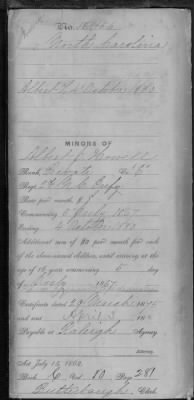 No.
North Carolina
Albert 4 October 1880
MINORS OF
Albert J. Howell
Rank, Private Co. "E"
Reg't 2d N. C. Infy
Rate per month, $8
Commencing 6 July 1867
Ending 4 October 1880
Additional sum of $2 per month for each
of the above-named children, until arriving at the
age of 16 years, commencing
of July 1867
Certificate dated 29 March 1875
and sent April 3 187
Payable at Raleigh Agency
Attorney.
Act July 14, 1862.
Book Vol. Page 281
Butterbaugh, Clerk.